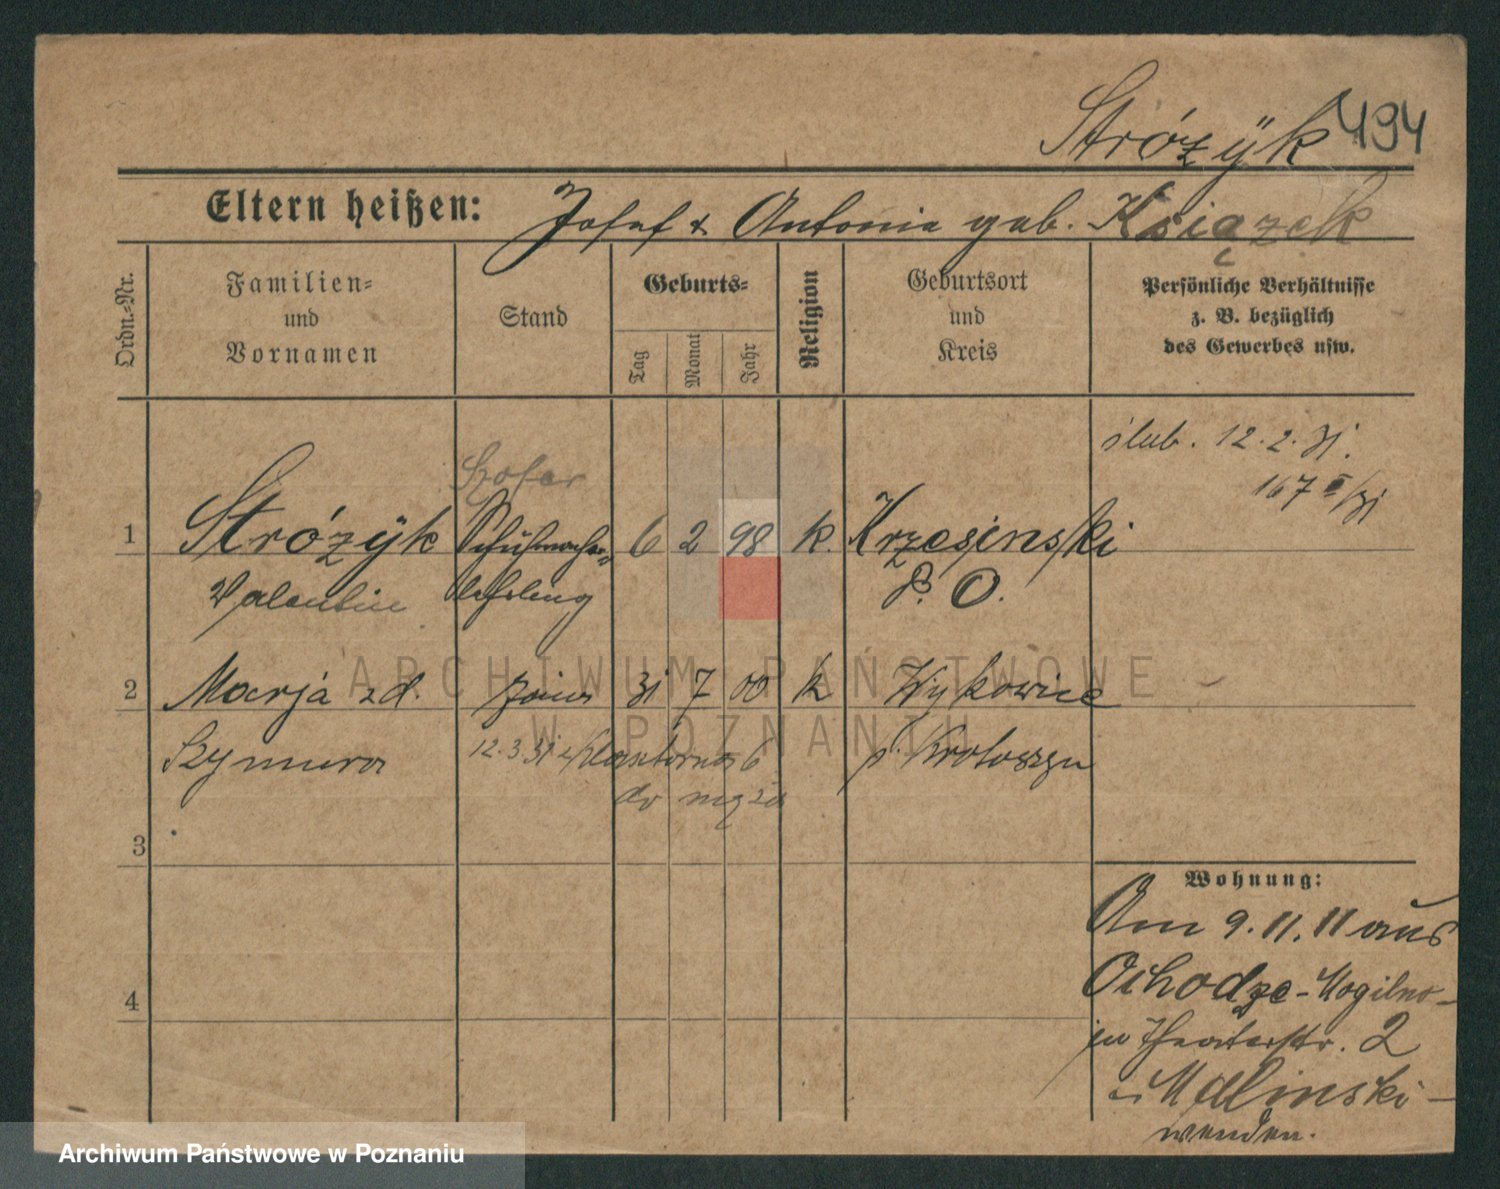 Strózÿk 494
Eltern heißen: Josef & Antonia geb. Książek
Ordn.-Nr.
Familien-
und
Vornamen
Stand
Geburts-
Tag
Monat
Jahr
Religion
Geburtsort
und
Kreis
Persönliche Verhältnisse
z. B. bezüglich
des Gewerbes usw.
ślub. 12.2.31.
Szofer
1 Strózÿk Schuhmacher- 6 2 98 k. Krzesinski
Valentin lehrling P. O.
2 Marja zd. żona 31 7 00 k Wykowice
Szymura 12.3.31 z Klasztorna 6 p. Krotoszyn
do męża
3
4
Wohnung:
Am 9.11.11 aus
Ochodze-Mogilno-
in Theaterstr. 2
Malinski-
wenden.
ARCHIWUM PAŃSTWOWE
W POZNANIU
Archiwum Państwowe w Poznaniu